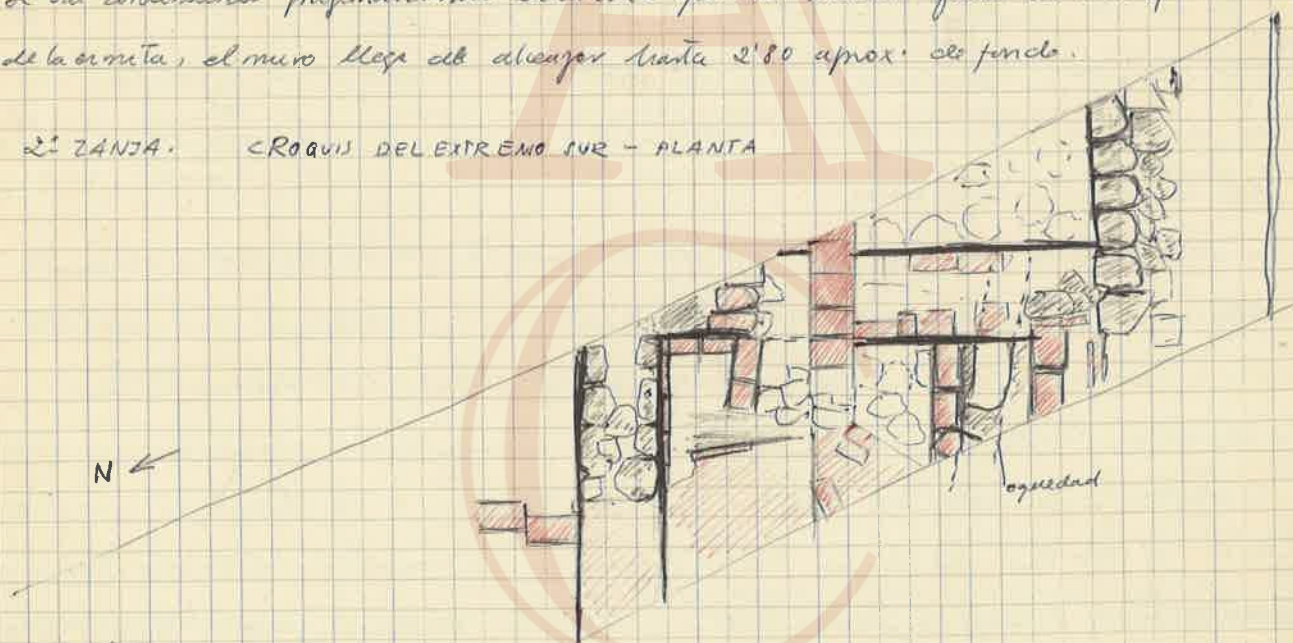 de la ermita, el muro llega a alcanzar hasta 2'80 aprox. de fondo.
2ª ZANJA. CROQUIS DEL EXTREMO SUR - PLANTA
N
oquedad